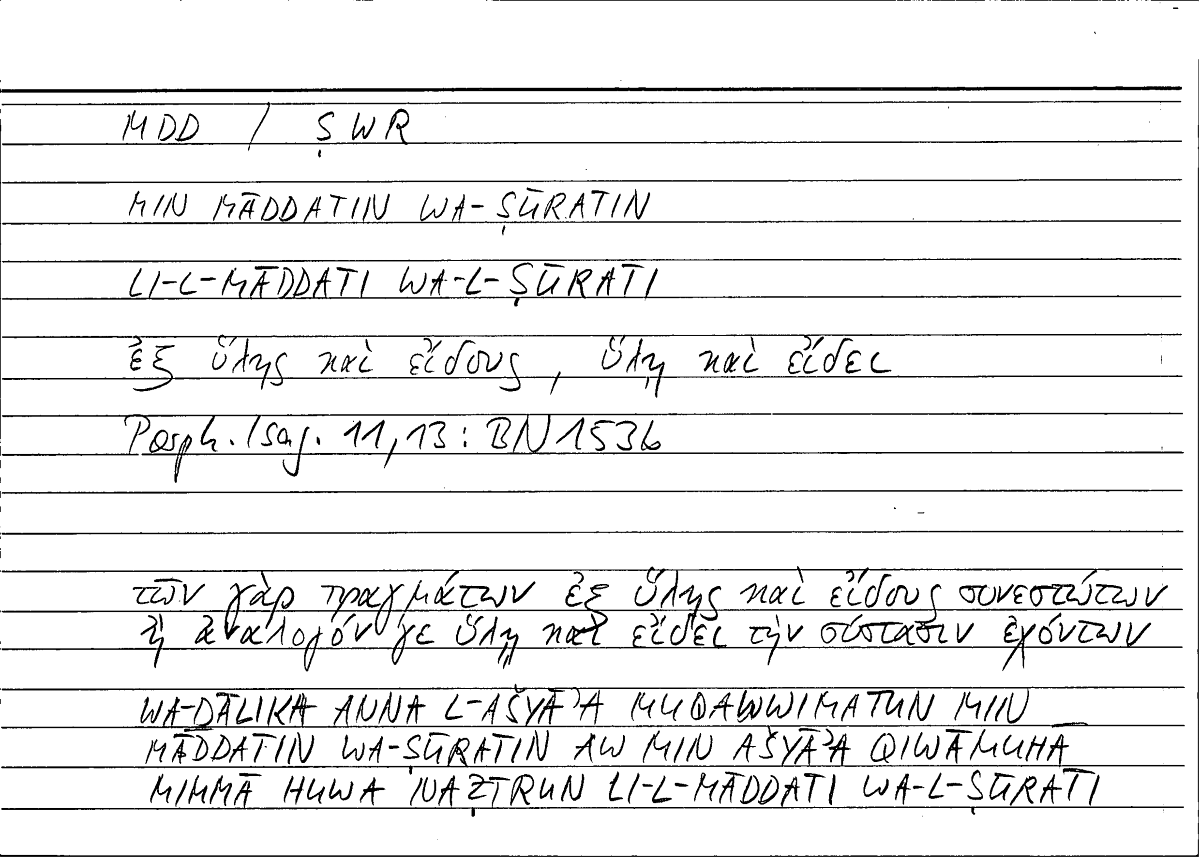 MDD / ṢWR
MIN MĀDDATIN WA-ṢŪRATIN
LI-L-MĀDDATI WA-L-ṢŪRATI
ἐξ ὕλης καὶ εἴδους, ὕλῃ καὶ εἴδει
Porph. Isag. 11,13: BN 1536
τῶν γὰρ πραγμάτων ἐξ ὕλης καὶ εἴδους συνεστώτων
ἢ ἀναλογόν γε ὕλῃ καὶ εἴδει τὴν σύστασιν ἐχόντων
WA-ḎĀLIKA ANNA L-AŠYĀʾA MUQAWWIMATUN MIN
MĀDDATIN WA-ṢŪRATIN AW MIN AŠYĀʾA QIWĀMUHĀ
MIMMĀ HUWA NAẒĪRUN LI-L-MĀDDATI WA-L-ṢŪRATI